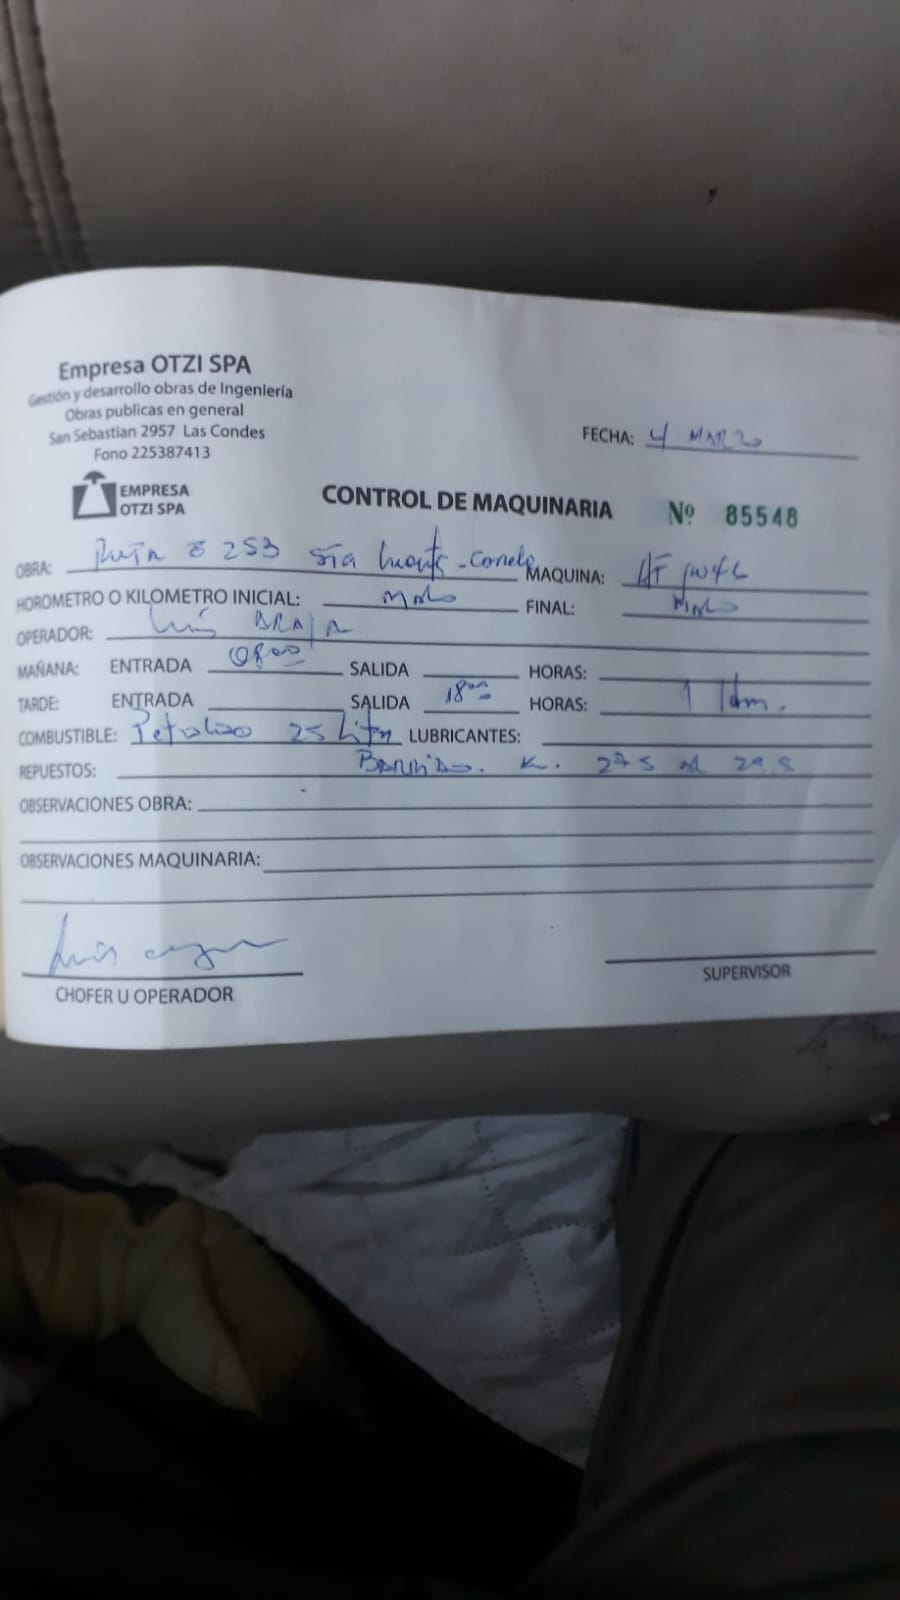 Empresa OTZI SPA
Gestión y desarrollo obras de Ingeniería
Obras publicas en general
San Sebastian 2957 Las Condes
Fono 225387413
FECHA: 4 MARZO
EMPRESA
OTZI SPA
CONTROL DE MAQUINARIA Nº 85548
OBRA: 253 MAQUINA:
HOROMETRO O KILOMETRO INICIAL: MALO FINAL: MALO
OPERADOR: Luis
MAÑANA: ENTRADA 0800 SALIDA HORAS:
TARDE: ENTRADA SALIDA 1800 HORAS: 1
COMBUSTIBLE: Petroleo 25 LUBRICANTES:
REPUESTOS: Barrido. K.
OBSERVACIONES OBRA:
OBSERVACIONES MAQUINARIA:
Luis
CHOFER U OPERADOR SUPERVISOR